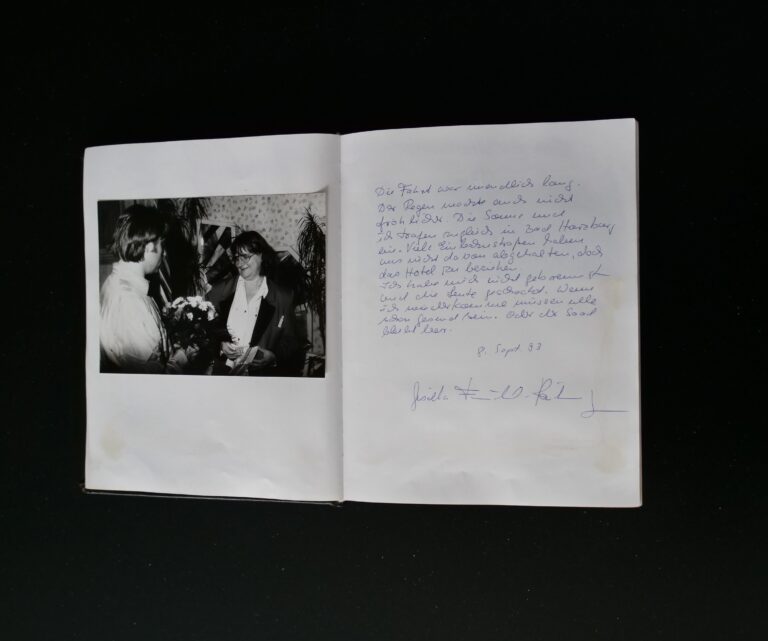 Die Fahrt war unendlich lang.
Der Regen machte auch nicht
fröhlicher. Die Sonne und
ich trafen zugleich in Bad Harzburg
ein. Viele Einbahnstraßen haben
uns nicht davon abgehalten, doch
das Hotel zu beziehen.
Ich habe mich nicht
und die Leute gedacht. Wenn
ich wiederkomme müssen alle
schon gesund sein. Oder der Saal
bleibt leer.
8. Sept. 93
Gisela